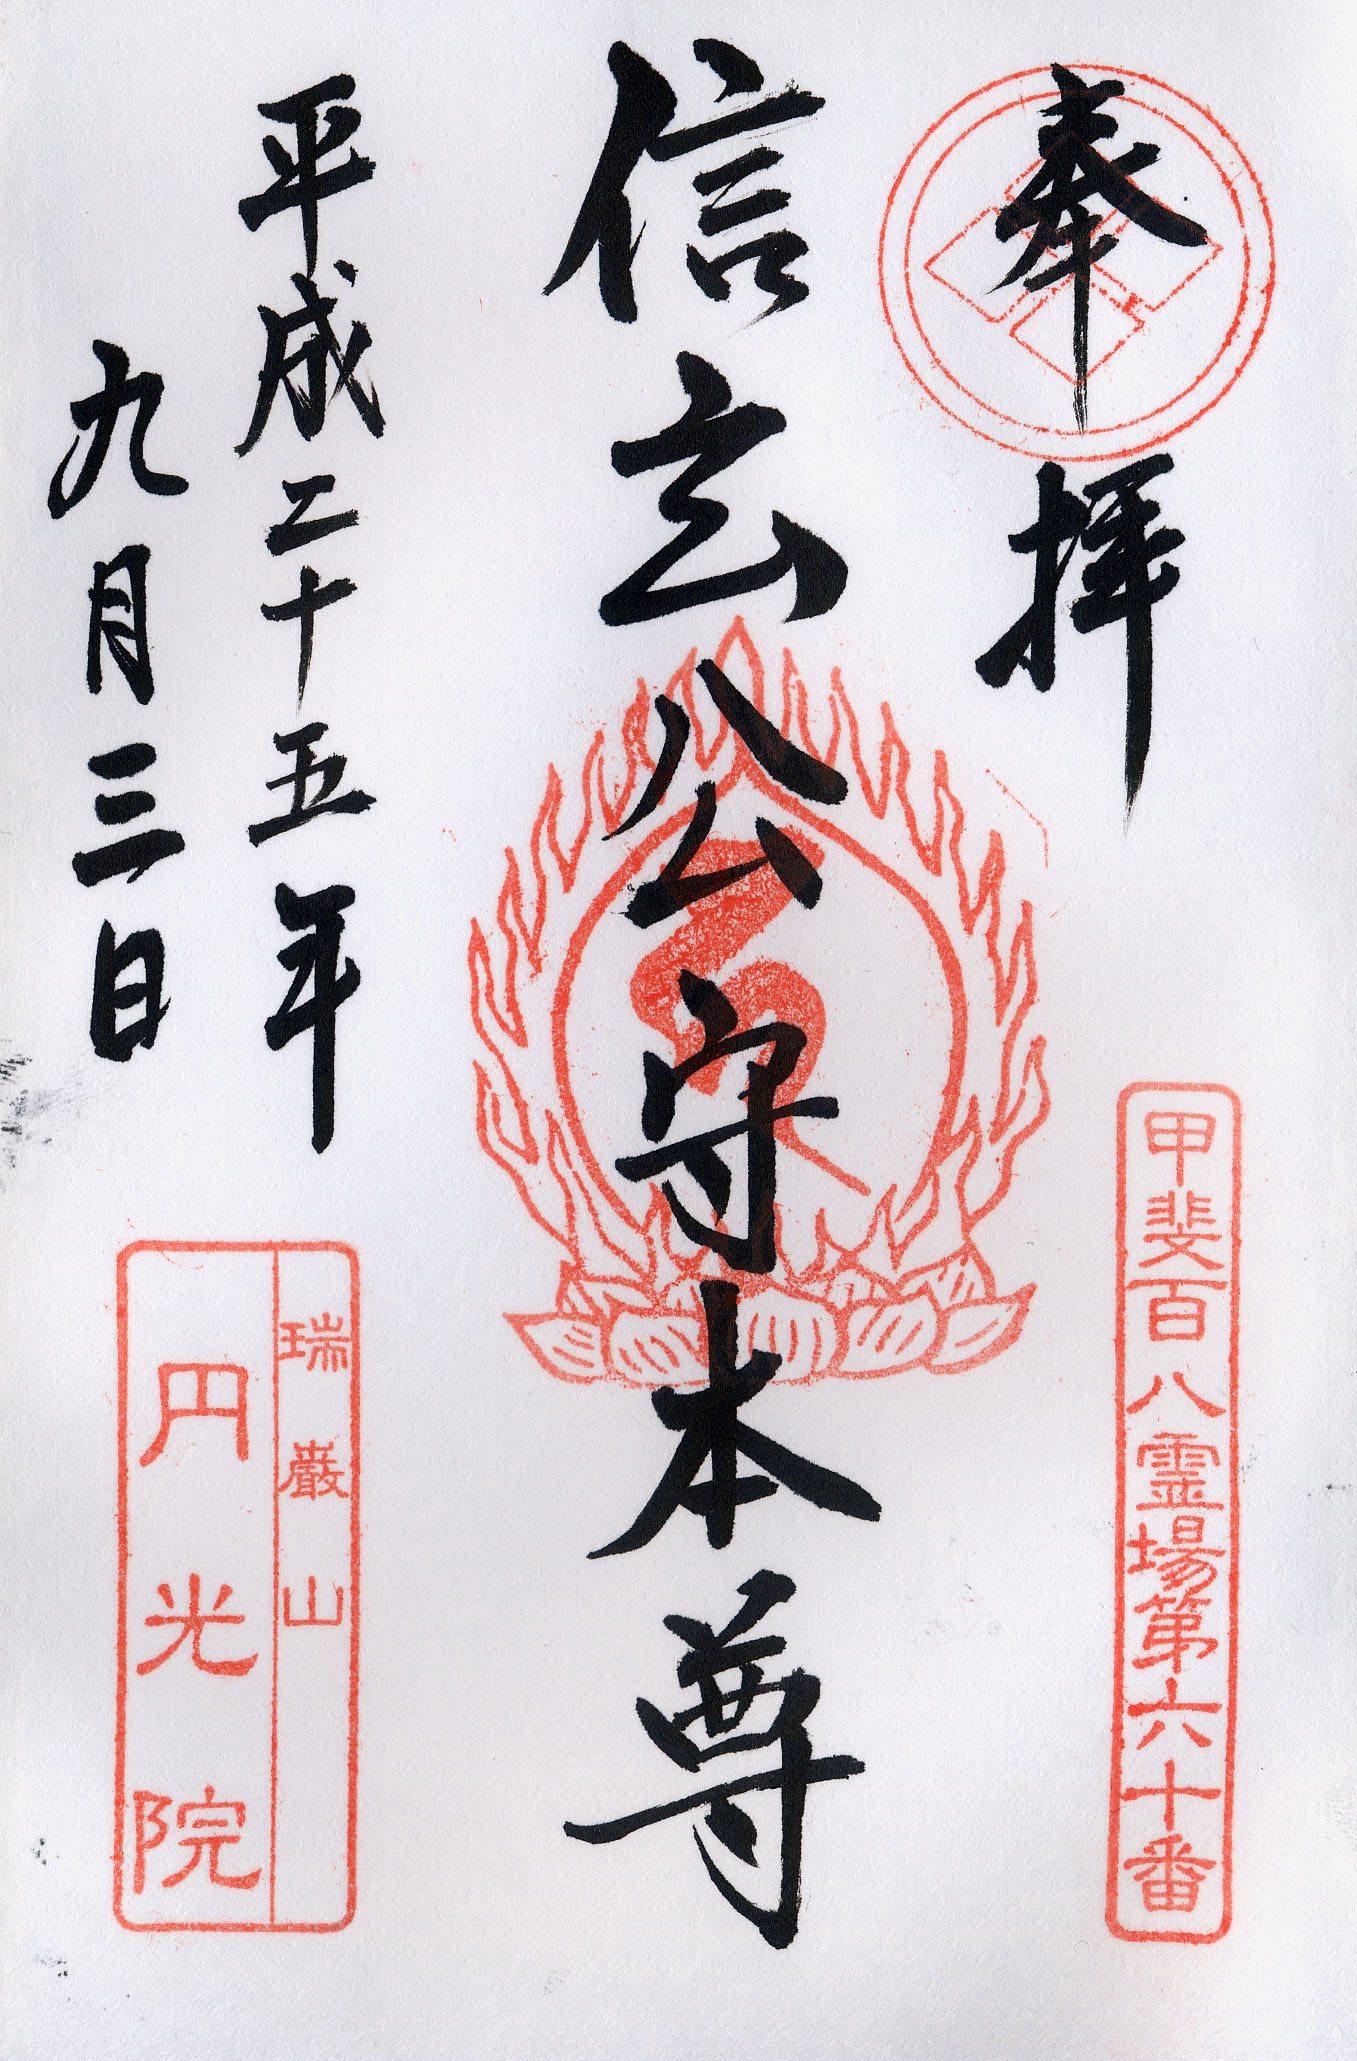 奉拝
甲斐百八霊場第六十番
信玄公守本尊
平成二十五年
九月三日
瑞巌山
円光院